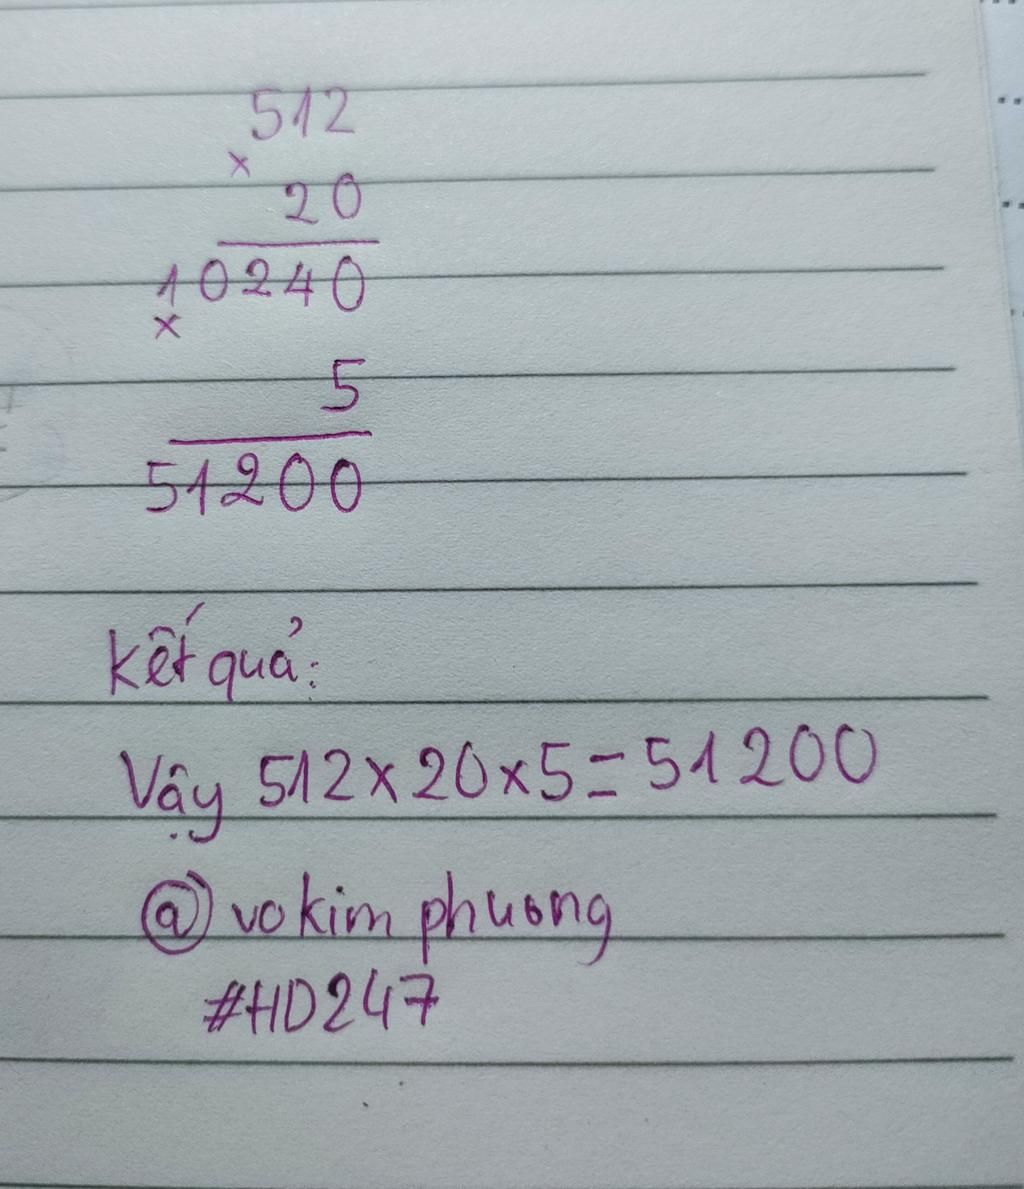 512
×
20
10240
×
5
51200
Kết quả:
Vậy 512×20×5=51200
@vokim phuong
#HD247